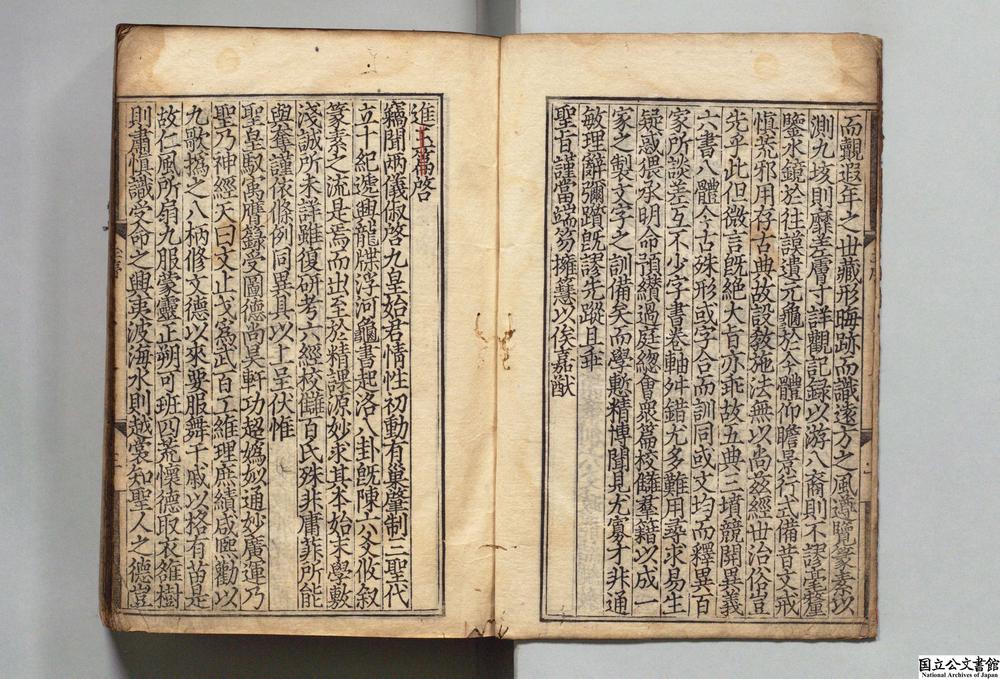 而觀遐年之世藏形晦跡而識遠方之風遵覽篆素以
測九垓則靡差膚寸詳觀記錄以游八裔則不謬毫釐
鑒水鏡於往謨遺元龜於今體仰瞻景行式備昔文戒
慎荒邪用存古典故設教施法無以尚玆經世治俗豈
先乎此但微言既絕大旨亦乖故五典三墳競開異義
六書八體今古殊形或字合而訓同或文均而釋異百
家所談差互不少字書卷軸舛錯尤多難用尋求易生
疑惑猥承明命預纘過庭緫會衆篇校讎羣籍以成一
家之製文字之訓備矣而學慙精博聞見尤寡才非通
敏理辭彌躓既謬先蹤且乖
聖旨謹當端笏擁篲以俟嘉猷
進玉篇啓
竊聞兩儀俶啓九皇始君情性初動有巢肇制三聖代
立十紀遞興龍牒浮河龜書起洛八卦既陳六文攸叙
篆素之流是焉而出至於精課源妙求其本始末學敷
淺誠所未詳雖復研考六經校讎百氏殊非庸菲所能
與奪謹依條例同異具以上呈伏惟
聖皇馭寓膺籙受圖德尚昊軒功超嬀姒通妙廣運乃
聖乃神經天曰文止戈爲武百工維理庶績咸熙勸以
九歌撝之八柄修文德以來要服舞干戚以格有苗是
故仁風所扇九服蒙靈正朔可班四荒懷德取衣雒樹
則肅慎識受命之興夷波海水則越裳知聖人之德豈
国立公文書館
National Archives of Japan